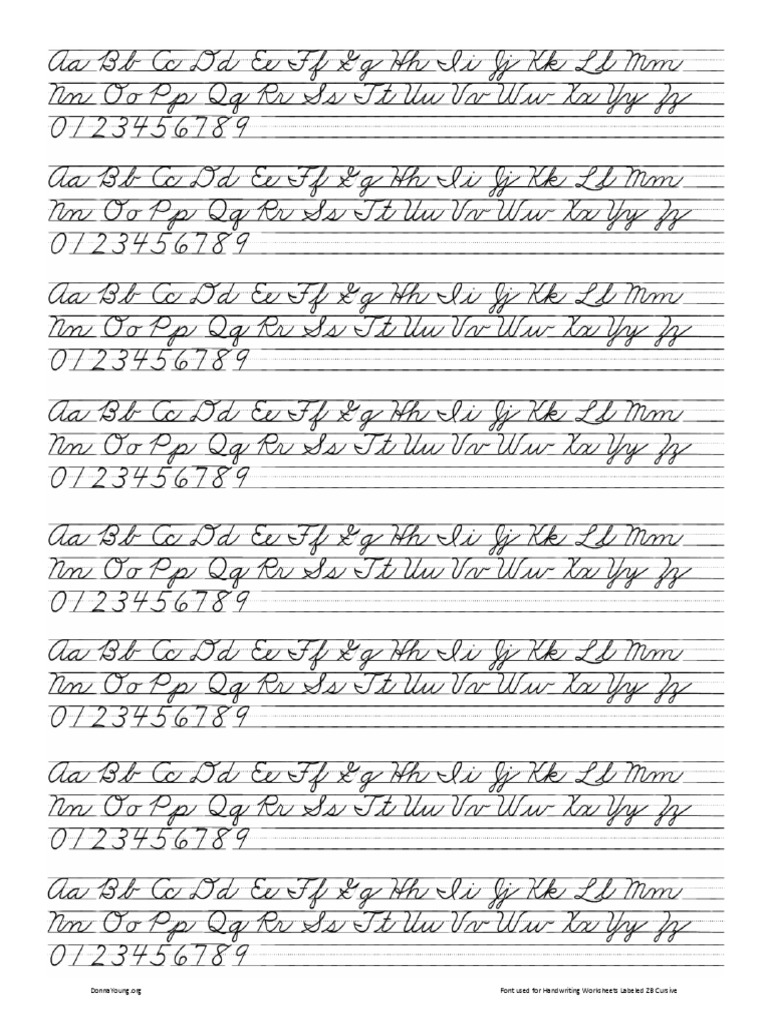 Aa Bb Cc Dd Ee Ff Gg Hh Ii Jj Kk Ll Mm
Nn Oo Pp Qq Rr Ss Tt Uu Vv Ww Xx Yy Zz
0123456789
Aa Bb Cc Dd Ee Ff Gg Hh Ii Jj Kk Ll Mm
Nn Oo Pp Qq Rr Ss Tt Uu Vv Ww Xx Yy Zz
0123456789
Aa Bb Cc Dd Ee Ff Gg Hh Ii Jj Kk Ll Mm
Nn Oo Pp Qq Rr Ss Tt Uu Vv Ww Xx Yy Zz
0123456789
Aa Bb Cc Dd Ee Ff Gg Hh Ii Jj Kk Ll Mm
Nn Oo Pp Qq Rr Ss Tt Uu Vv Ww Xx Yy Zz
0123456789
Aa Bb Cc Dd Ee Ff Gg Hh Ii Jj Kk Ll Mm
Nn Oo Pp Qq Rr Ss Tt Uu Vv Ww Xx Yy Zz
0123456789
Aa Bb Cc Dd Ee Ff Gg Hh Ii Jj Kk Ll Mm
Nn Oo Pp Qq Rr Ss Tt Uu Vv Ww Xx Yy Zz
0123456789
Aa Bb Cc Dd Ee Ff Gg Hh Ii Jj Kk Ll Mm
Nn Oo Pp Qq Rr Ss Tt Uu Vv Ww Xx Yy Zz
0123456789
Aa Bb Cc Dd Ee Ff Gg Hh Ii Jj Kk Ll Mm
Nn Oo Pp Qq Rr Ss Tt Uu Vv Ww Xx Yy Zz
0123456789
DonnaYoung.org Font used for Handwriting Worksheets Labeled ZB Cursive